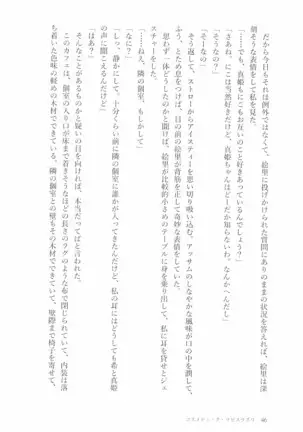 だから今日もそれは例外ではなくて、絵里に投げかけられた質問にありのままの状況を答えれば、絵里は深
そうな表情をして私を見た。
「……でも、真姫もにこもお互いのこと好きあっているんでしょう?」
「さあね。にこは当然好きだけど、真姫ちゃんはどーだか知らないわ。なんかへんだし」
「そうなの?」
「そーなの」
ふう、とため息をつけば、ストローからアイスティーを思い切り吸い込む。アッサムのしなやかな風味が口の中を潤して、
そして、目の前の絵里が背筋を正して奇妙な表情をしていた。
思わず一体どうしたのだと聞けば、絵里が比較的小さめのテーブルに身を乗り出して、私に耳を貸せとジェ
スチャーをした。
「……ねえ、隣の個室、もしかして」
「なに?」
「しっ、静かにして。十分くらい前に隣の個室に誰かが入ってきたんだけど、私の耳にはどうしても希と真姫
の声に聞こえるんだけど」
「はあ?」
そんなことがあるものかと疑いの目を向ければ、本当だってばと言われた。
このカフェは、個室の入り口が床まで着きそうなほどの長さのラグのような布で閉じられていて、内装は落
ち着いた色味の軽めの木材でできている。隣の個室との壁もその木材でできていて、壁際まで椅子を寄せて、
46